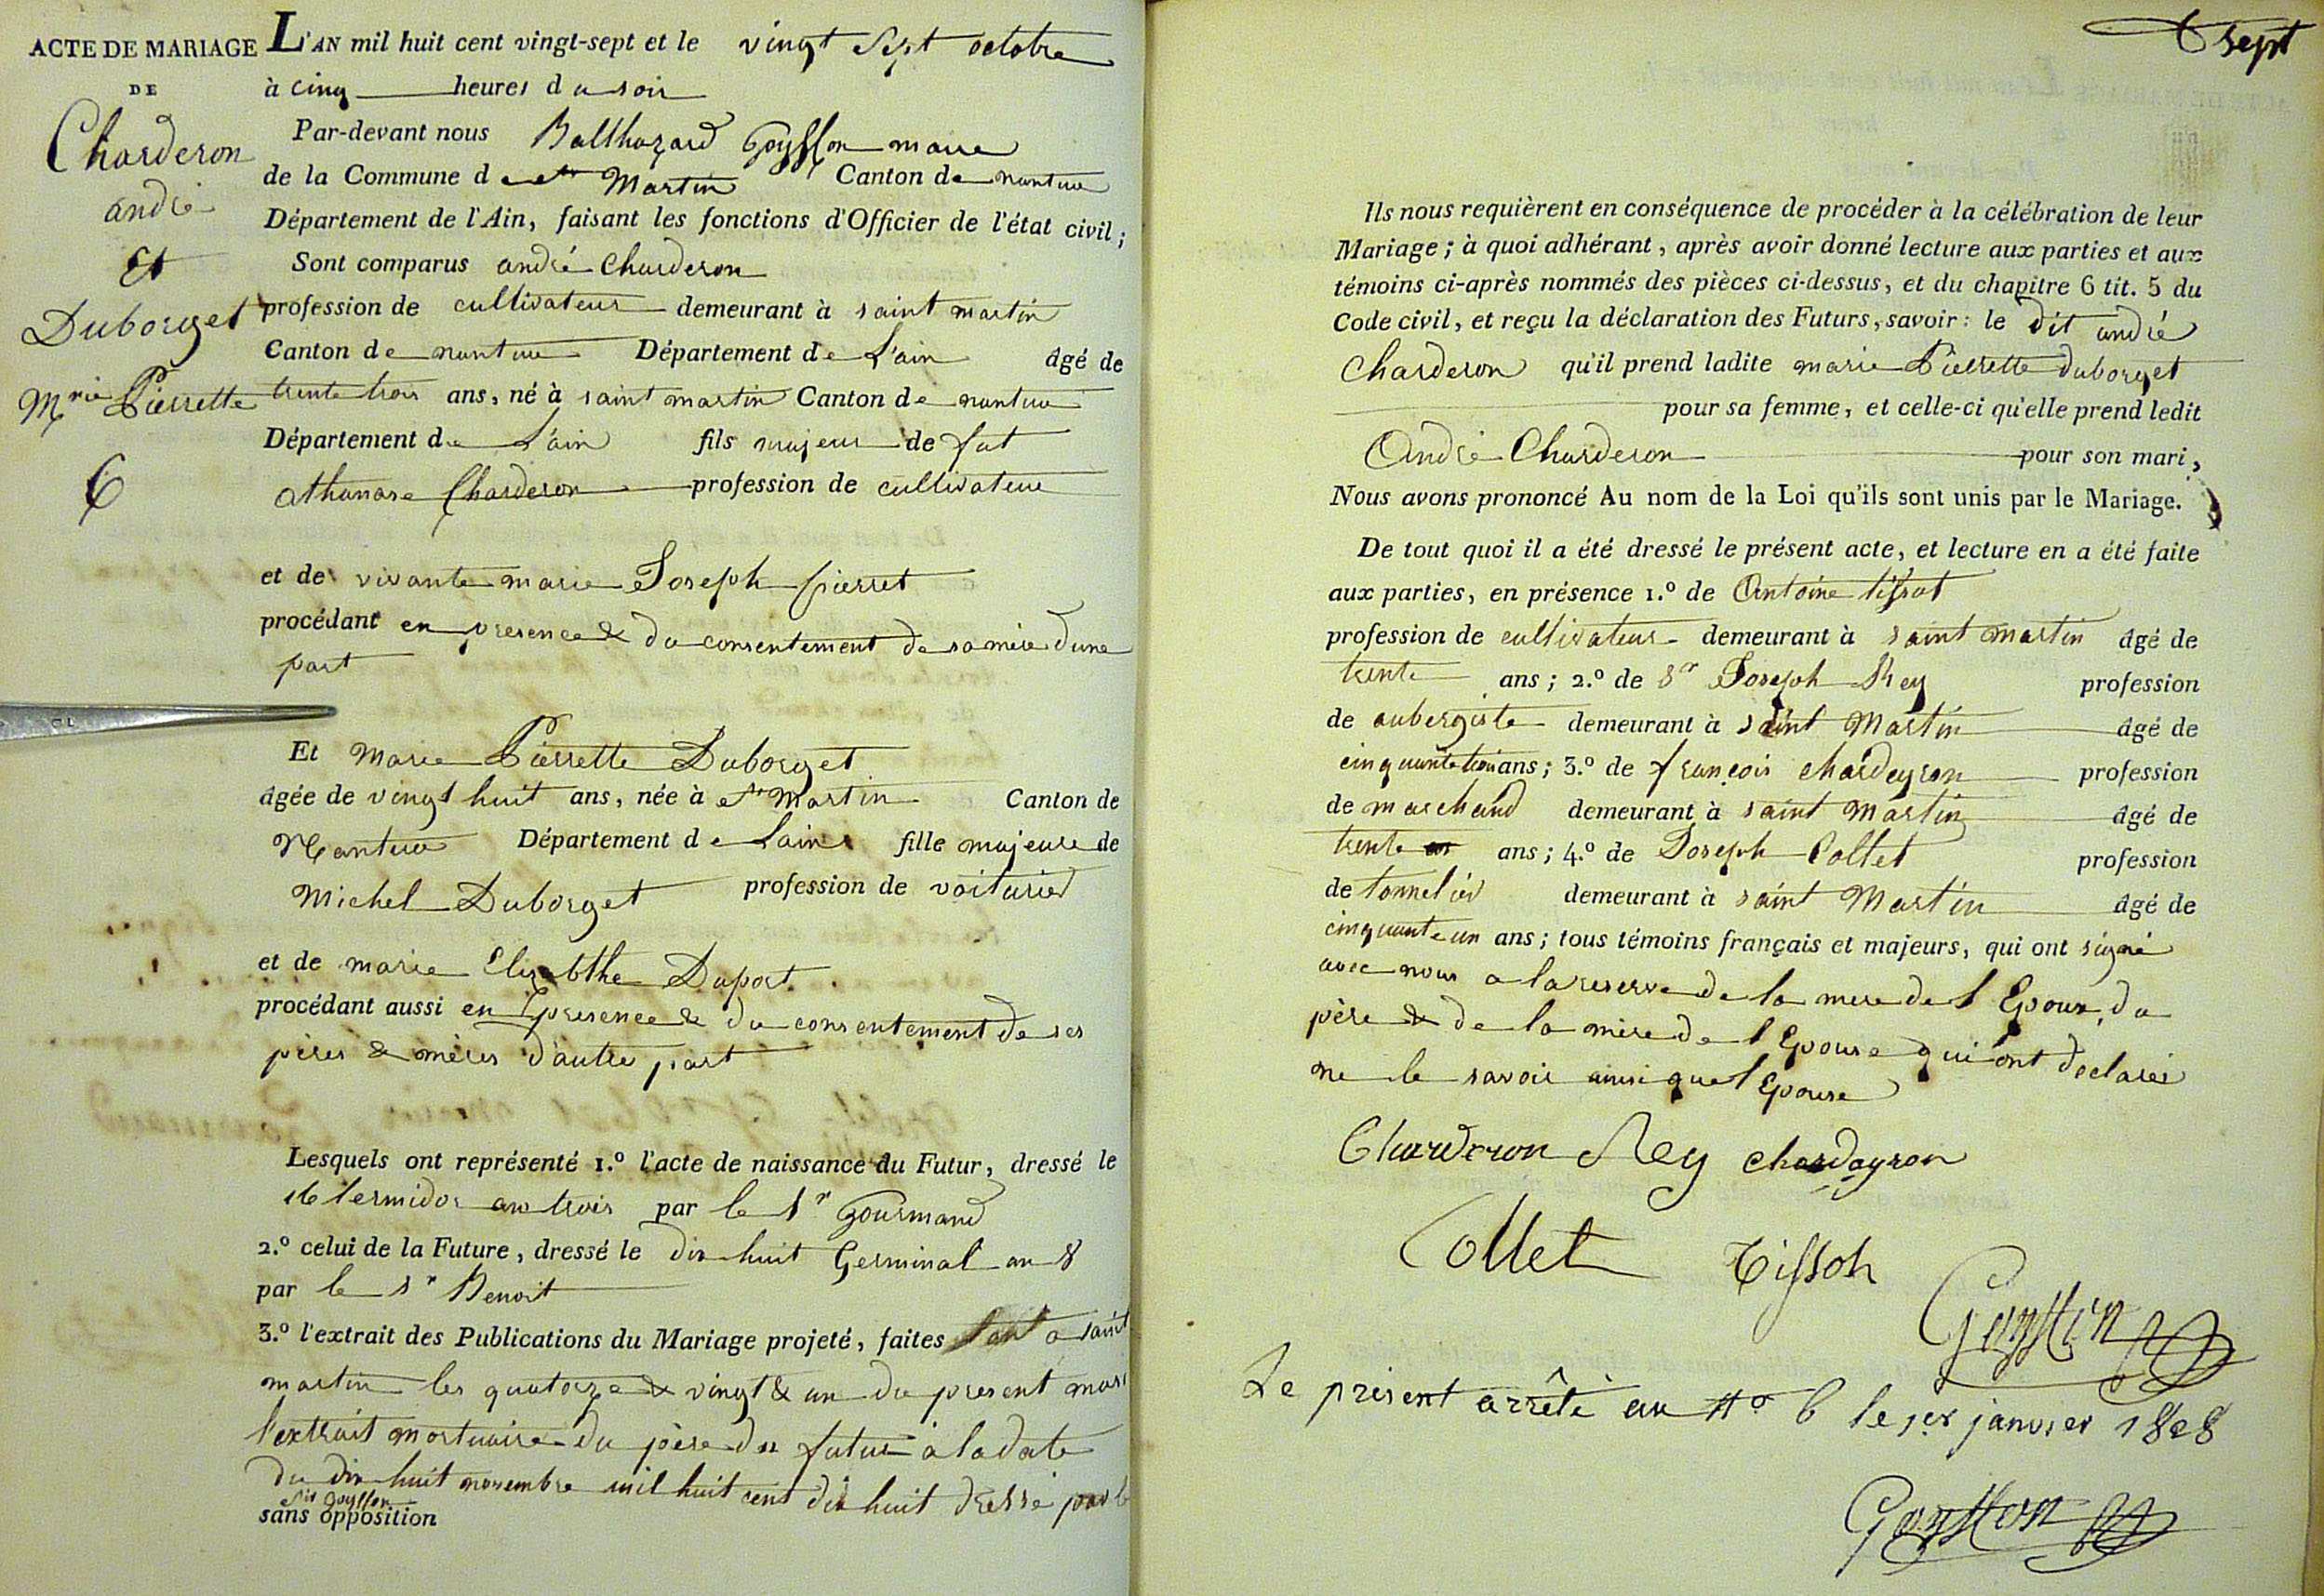 ACTE DE MARIAGE
DE
Charderon
andré
Et
Duborget
Mrie Pierrette
6
L'AN mil huit cent vingt-sept et le vingt sept octobre
à cinq heures du soir
Par-devant nous Balthazard Goyffon maire
de la Commune de st Martin Canton de nantua
Département de l'Ain, faisant les fonctions d'Officier de l'état civil;
Sont comparus andré Charderon
profession de cultivateur demeurant à saint martin
Canton de nantua Département de L'ain âgé de
trente trois ans, né à saint martin Canton de nantua
Département de L'ain fils majeur de fut
athanase Charderon profession de cultivateur
et de vivante marie Joseph pierret
procédant en presence & du consentement de sa mère d'une
part
Et Marie Pierrette Duborget
âgée de vingt huit ans, née à st Martin Canton de
Nantua Département de Lain fille majeure de
Michel Duborget profession de voiturier
et de marie Elizabthe Duport
procédant aussi en presence & du consentement de ses
pères & mères d'autre part
Lesquels ont représenté 1.º l'acte de naissance du Futur, dressé le
16 termidor an trois par le Sr Gourmand
2.º celui de la Future, dressé le dix huit Germinal an 8
par le Sr Benoit
3.º l'extrait des Publications du Mariage projeté, faites tant a saint
martin les quatorze & vingt & un du present mois
l'extrait mortuaire du père du futur a la date
du dix huit novembre mil huit cent dix huit dressé par le
sir Goyffon
sans opposition
sept
Ils nous requièrent en conséquence de procéder à la célébration de leur
Mariage; à quoi adhérant, après avoir donné lecture aux parties et aux
témoins ci-après nommés des pièces ci-dessus, et du chapitre 6 tit. 5 du
Code civil, et reçu la déclaration des Futurs, savoir: le dit andré
Charderon qu'il prend ladite marie Pierrette duborget
pour sa femme, et celle-ci qu'elle prend ledit
André Charderon pour son mari,
Nous avons prononcé Au nom de la Loi qu'ils sont unis par le Mariage.
De tout quoi il a été dressé le présent acte, et lecture en a été faite
aux parties, en présence 1.º de Antoine tissot
profession de cultivateur demeurant à saint martin âgé de
trente ans; 2.º de Sr Joseph Rey profession
de aubergiste demeurant à saint Martin âgé de
cinquante trois ans; 3.º de françois chardeyron profession
de marchand demeurant à saint Martin âgé de
trente ans; 4.º de Joseph Collet profession
de tonnelier demeurant à saint Martin âgé de
cinquante un ans; tous témoins français et majeurs, qui ont signé
avec nous a la reserve de la mere de l Epoux, du
père & de la mère de l Epouse qui ont declarés
ne le savoir ainsi que l Epouse
Charderon Rey chardayron
Collet Tissoh
Goyffon
Le present arrêté au No 6 le 1er janvier 1828
Goyffon